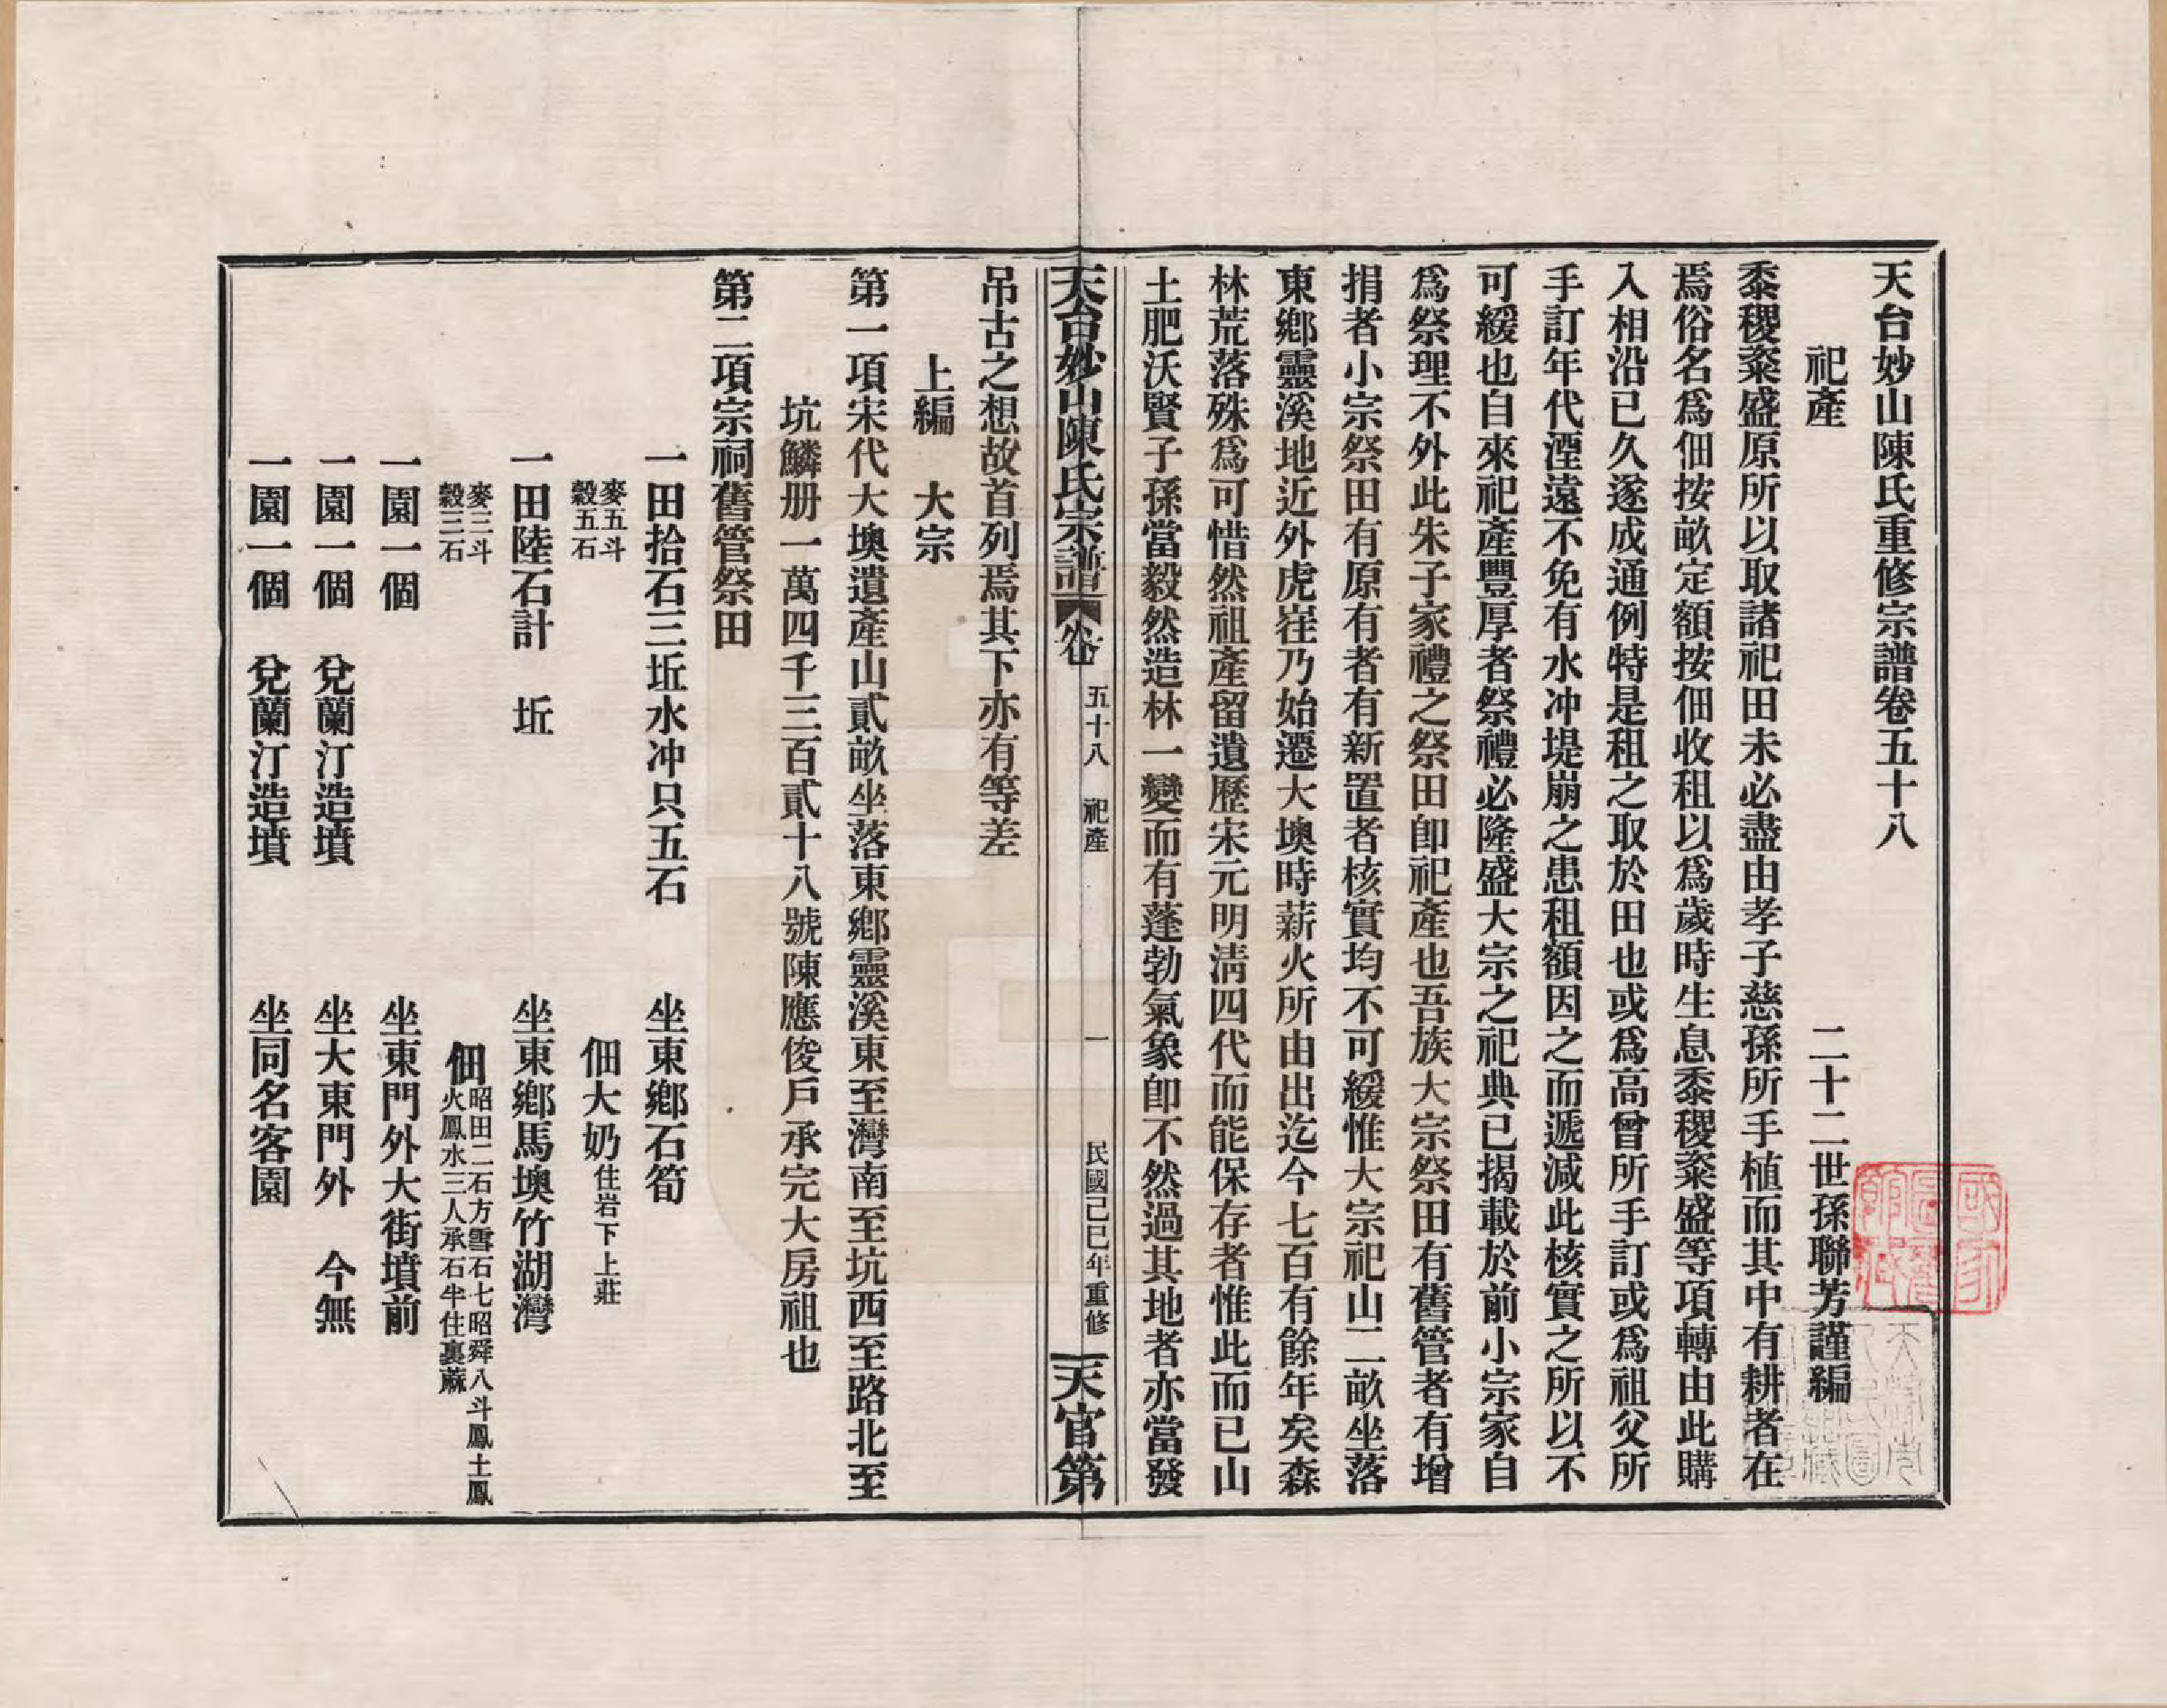 天台妙山陳氏重修宗譜卷五十八
祀產
二十二世孫聯芳謹編
黍稷粢盛原所以取諸祀田未必盡由孝子慈孫所手植而其中有耕者在
焉俗名爲佃按畝定額按佃收租以爲歲時生息黍稷粢盛等項轉由此購
入相沿已久遂成通例特是租之取於田也或爲高曾所手訂或爲祖父所
手訂年代湮遠不免有水冲堤崩之患租額因之而遞减此核實之所以不
可緩也自來祀產豐厚者祭禮必隆盛大宗之祀典已揭載於前小宗家自
爲祭理不外此朱子家禮之祭田卽祀產也吾族大宗祭田有舊管者有增
捐者小宗祭田有原有者有新置者核實均不可緩惟大宗祀山二畝坐落
東鄉靈溪地近外虎嵀乃始遷大墺時薪火所由出迄今七百有餘年矣森
林荒落殊爲可惜然祖產留遺歷宋元明淸四代而能保存者惟此而已山
土肥沃賢子孫當毅然造林一變而有蓬勃氣象卽不然過其地者亦當發
天台妙山陳氏宗譜 卷 五十八 祀產 一 民國己巳年重修 天官第
吊古之想故首列焉其下亦有等差
上編 大宗
第一項宋代大墺遺產山貳畝坐落東鄉靈溪東至灣南至坑西至路北至
坑鱗册一萬四千三百貳十八號陳應俊戶承完大房祖也
第二項宗祠舊管祭田
一田拾石三坵水冲只五石 坐東鄉石筍
麥五斗
穀五石
佃大奶住岩下上莊
一田陸石計 坵 坐東鄉馬墺竹湖灣
麥三斗
穀三石
佃昭田二石方雪石七昭舜八斗鳳土鳳
火鳳水三人承石半住裏蔴
一園一個 坐東門外大街墳前
一園一個 兌蘭汀造墳 坐大東門外 今無
一園一個 兌蘭汀造墳 坐同名客園